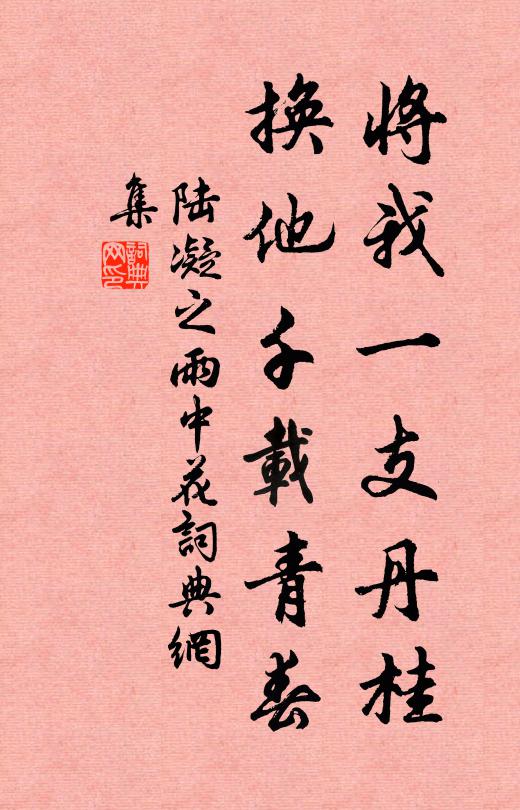 將我一支丹桂
換他千載青春
陆凝之雨中花詞典網
集
詞典
网印